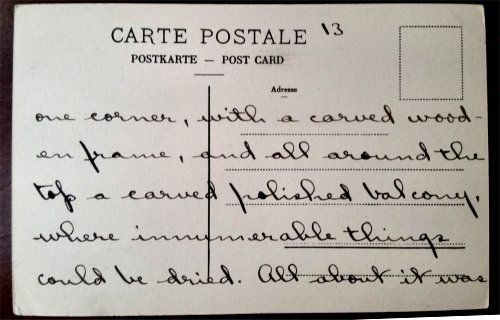 CARTE POSTALE 13
POSTKARTE — POST CARD
Adresse
one corner, with a carved wood-
en frame, and all around the
top a carved polished balcony,
where innumerable things
could be dried. All about it was